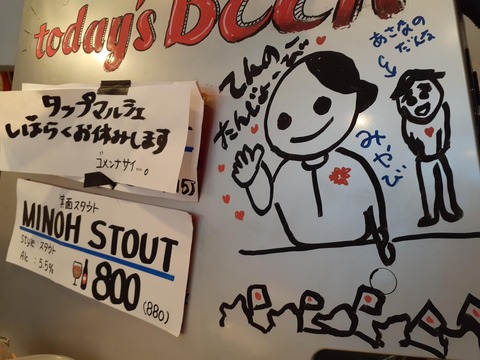 today's BEER
タップマルシェ
しばらくお休みします
ゴメンナサイー。
箕面スタウト
MINOH STOUT
style スタウト
Alc : 5.5%
800
(880)
てんのー
たんじょーび
みやび
あさなの
だんな